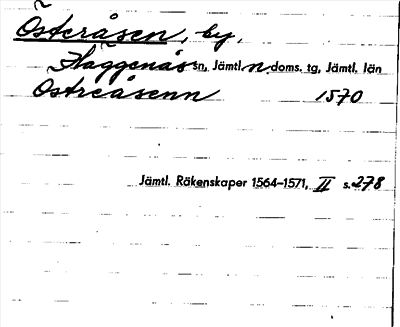 Österåsen, by,
Häggenås sn, Jämtl. n. doms. tg, Jämtl. län
Ostreåsenn 1570
Jämtl. Räkenskaper 1564-1571, II s. 278